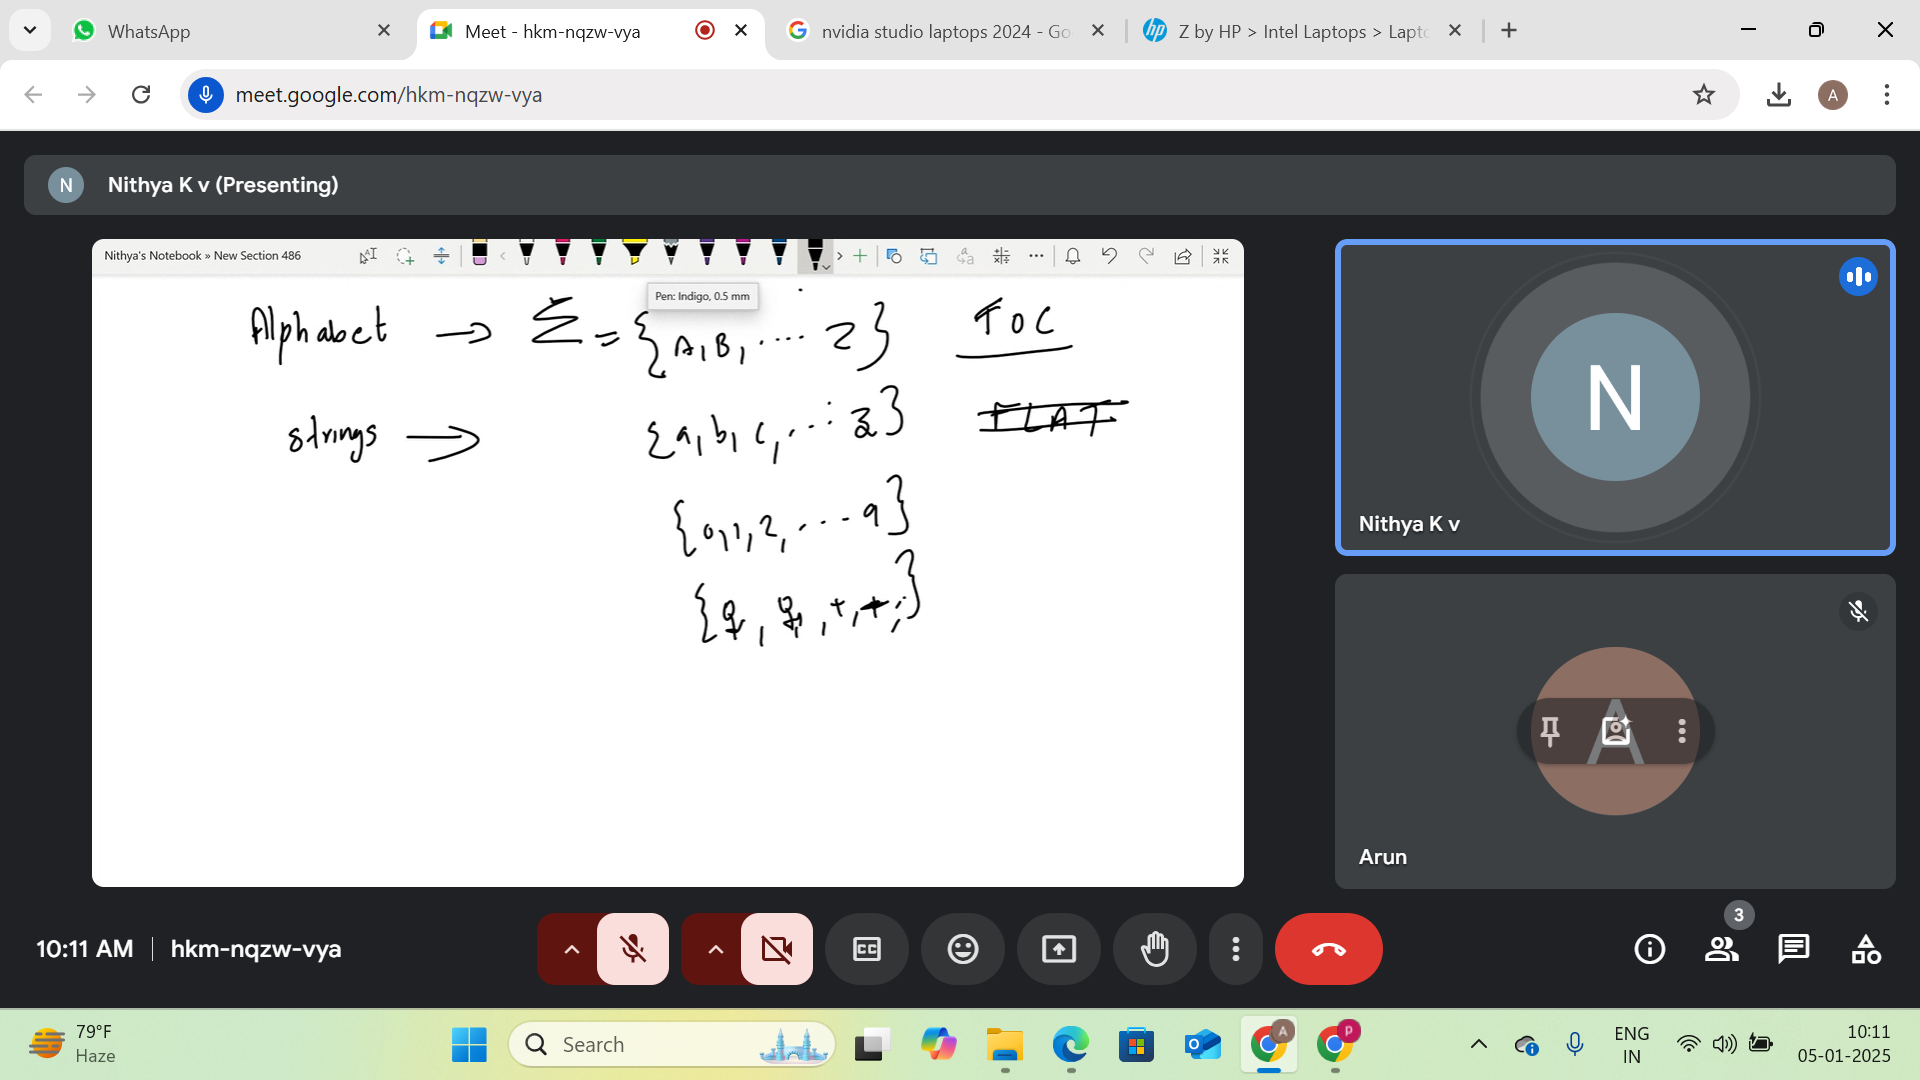 WhatsApp
Meet - hkm-nqzw-vya
nvidia studio laptops 2024 - Go
Z by HP > Intel Laptops > Lapto
meet.google.com/hkm-nqzw-vya
A
N Nithya K v (Presenting)
Nithya's Notebook » New Section 486
Pen: Indigo, 0.5 mm
Alphabet → Σ = {A, B, .... Z} TOC
strings → {a, b, c, .... z} FLAT
{0, 1, 2, .... 9}
N
Nithya K v
A
Arun
10:11 AM | hkm-nqzw-vya
CC
3
79°F
Haze
Search
A
P
ENG
IN
10:11
05-01-2025